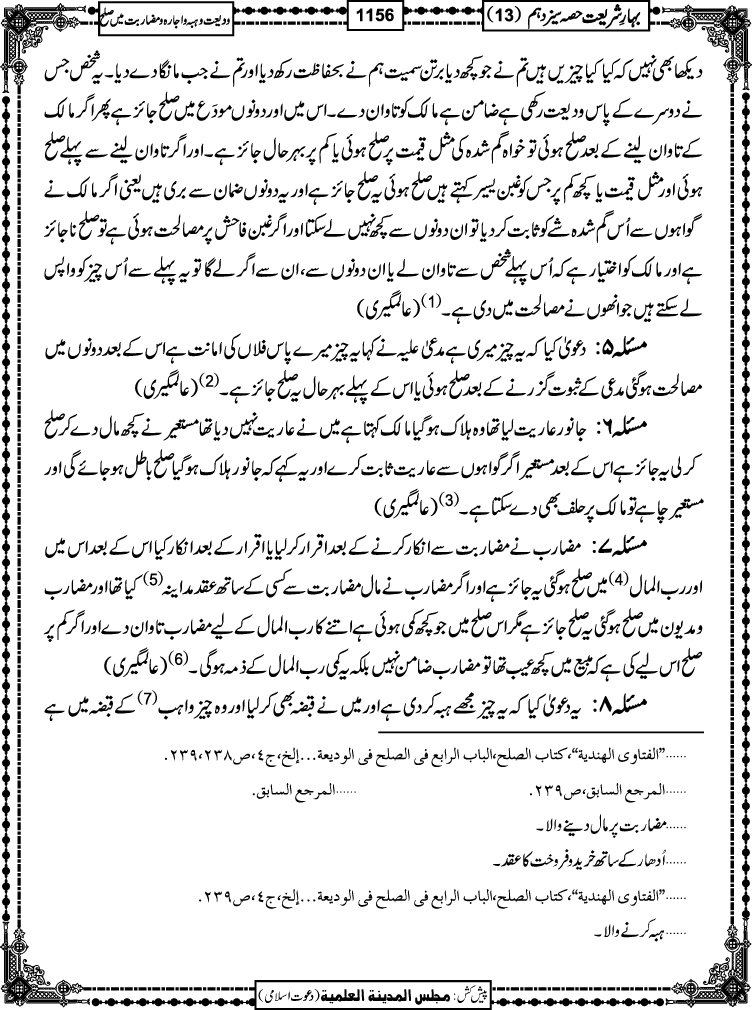 بہارِ شریعت حصہ سیزدہم (13)
1156
ودیعت وہبہ واجارہ ومضاربت میں صلح
دیکھا بھی نہیں کہ کیا کیا چیزیں ہیں تم نے جو کچھ دیا برتن سمیت ہم نے بحفاظت رکھ دیا اور تم نے جب مانگا دے دیا۔ یہ شخص جس
نے دوسرے کے پاس ودیعت رکھی ہے ضامن ہے مالک کو تاوان دے۔ اس میں اور دونوں مودَع میں صلح جائز ہے پھر اگر مالک
کے تاوان لینے کے بعد صلح ہوئی تو خواہ گم شدہ کی مثل قیمت پر صلح ہوئی یا کم پر بہرحال جائز ہے۔ اور اگر تاوان لینے سے پہلے صلح
ہوئی اور مثل قیمت یا کچھ کم پر جس کو غبن یسیر کہتے ہیں صلح ہوئی یہ صلح جائز ہے اور یہ دونوں ضمان سے بری ہیں یعنی اگر مالک نے
گواہوں سے اُس گم شدہ شے کو ثابت کر دیا تو ان دونوں سے کچھ نہیں لے سکتا اور اگر غبن فاحش پر مصالحت ہوئی ہے تو صلح ناجائز
ہے اور مالک کو اختیار ہے کہ اُس پہلے شخص سے تاوان لے یا ان دونوں سے، ان سے اگر لے گا تو یہ پہلے سے اُس چیز کو واپس
لے سکتے ہیں جو انھوں نے مصالحت میں دی ہے۔ (1) (عالمگیری)
مسئلہ ۵: دعویٰ کیا کہ یہ چیز میری ہے مدعیٰ علیہ نے کہا یہ چیز میرے پاس فلاں کی امانت ہے اس کے بعد دونوں میں
مصالحت ہوگئی مدعی کے ثبوت گزرنے کے بعد صلح ہوئی یا اس کے پہلے بہرحال یہ صلح جائز ہے۔ (2) (عالمگیری)
مسئلہ ۶: جانور عاریت لیا تھا وہ ہلاک ہوگیا مالک کہتا ہے میں نے عاریت نہیں دیا تھا مستعیر نے کچھ مال دے کر صلح
کر لی یہ جائز ہے اس کے بعد مستعیر اگر گواہوں سے عاریت ثابت کرے اور یہ کہے کہ جانور ہلاک ہوگیا صلح باطل ہو جائے گی اور
مستعیر چاہے تو مالک پر حلف بھی دے سکتا ہے۔ (3) (عالمگیری)
مسئلہ ۷: مضارب نے مضاربت سے انکار کرنے کے بعد اقرار کر لیا یا اقرار کے بعد انکار کیا اس کے بعد اس میں
اور رب المال (4) میں صلح ہوگئی یہ جائز ہے اور اگر مضارب نے مال مضاربت سے کسی کے ساتھ عقد مداینہ (5) کیا تھا اور مضارب
و مدیون میں صلح ہوگئی یہ صلح جائز ہے مگر اس صلح میں جو کچھ کمی ہوئی ہے اتنے کا رب المال کے لیے مضارب تاوان دے اور اگر کم پر
صلح اس لیے کی ہے کہ مبیع میں کچھ عیب تھا تو مضارب ضامن نہیں بلکہ یہ کمی رب المال کے ذمہ ہوگی۔ (6) (عالمگیری)
مسئلہ ۸: یہ دعویٰ کیا کہ یہ چیز مجھے ہبہ کر دی ہے اور میں نے قبضہ بھی کر لیا اور وہ چیز واہب (7) کے قبضہ میں ہے
......”الفتاوی الھندیة“،کتاب الصلح،الباب الرابع فی الصلح فی الودیعة...إلخ،ج٤،ص٢٣٨،٢٣٩.
......المرجع السابق،ص٢٣٩. ......المرجع السابق.
......مضاربت پر مال دینے والا۔
......اُدھار کے ساتھ خرید و فروخت کا عقد۔
......”الفتاوی الھندیة“،کتاب الصلح،الباب الرابع فی الصلح فی الودیعة...إلخ،ج٤،ص٢٣٩.
......ہبہ کرنے والا۔
پیش کش: مجلس المدینة العلمیة (دعوت اسلامی)